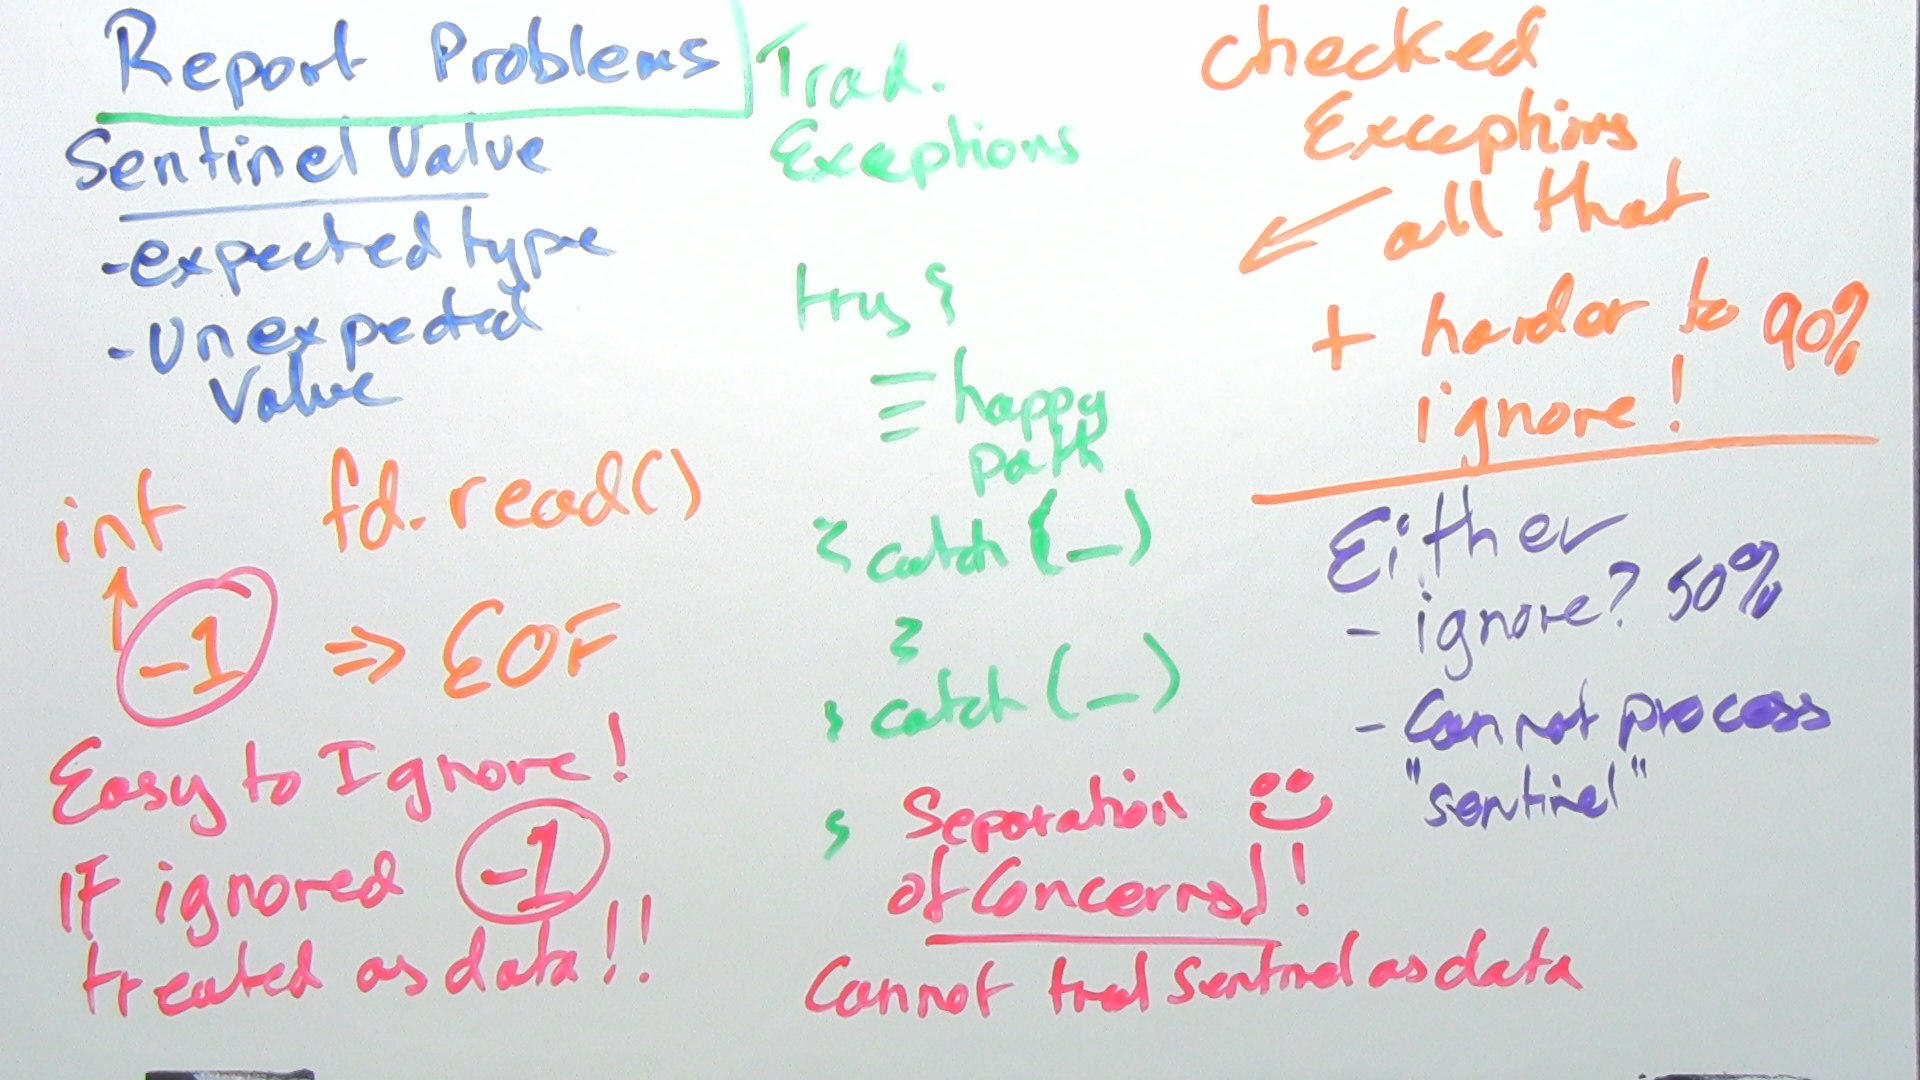 Report Problems
Sentinel Value
- expected type
- Unexpected
Value
int fd.read()
-1 => EOF
Easy to Ignore!
IF ignored -1
treated as data!!
Trad.
Exceptions
try {
happy
path
} catch (_)
}
} catch (_)
}
Separation
of Concerns!
Cannot treat Sentinel as data
Checked
Exceptions
all that
+ harder to 90%
ignore!
Either
- ignore? 50%
- Cannot process
"sentinel"